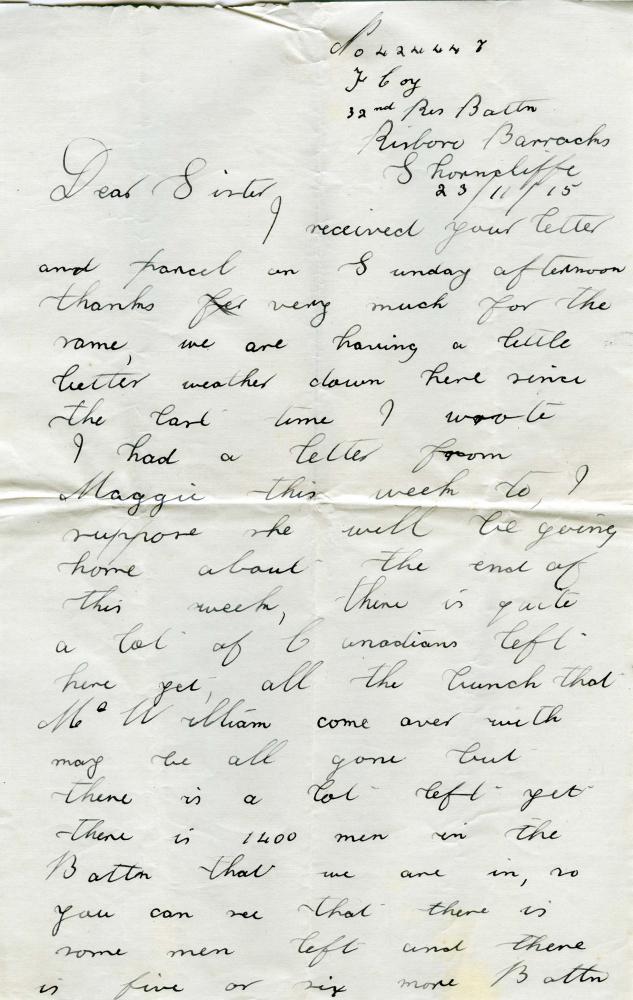 No 424447
F Coy
32nd Res Battn
Risboro Barracks
Shorncliffe
23/11/15
Dear Sister,
I received your letter
and parcel on Sunday afternoon
thanks for very much for the
same, we are having a little
better weather down here since
the last time I wrote
I had a letter from
Maggie this week to, I
suppose she will be going
home about the end of
this week, there is quite
a lot of Canadians left
here yet, all the bunch that
McWilliam come over with
may be all gone but
there is a lot left yet
there is 1400 men in the
Battn that we are in, so
you can see that there is
some men left and there
is five or six more Battn